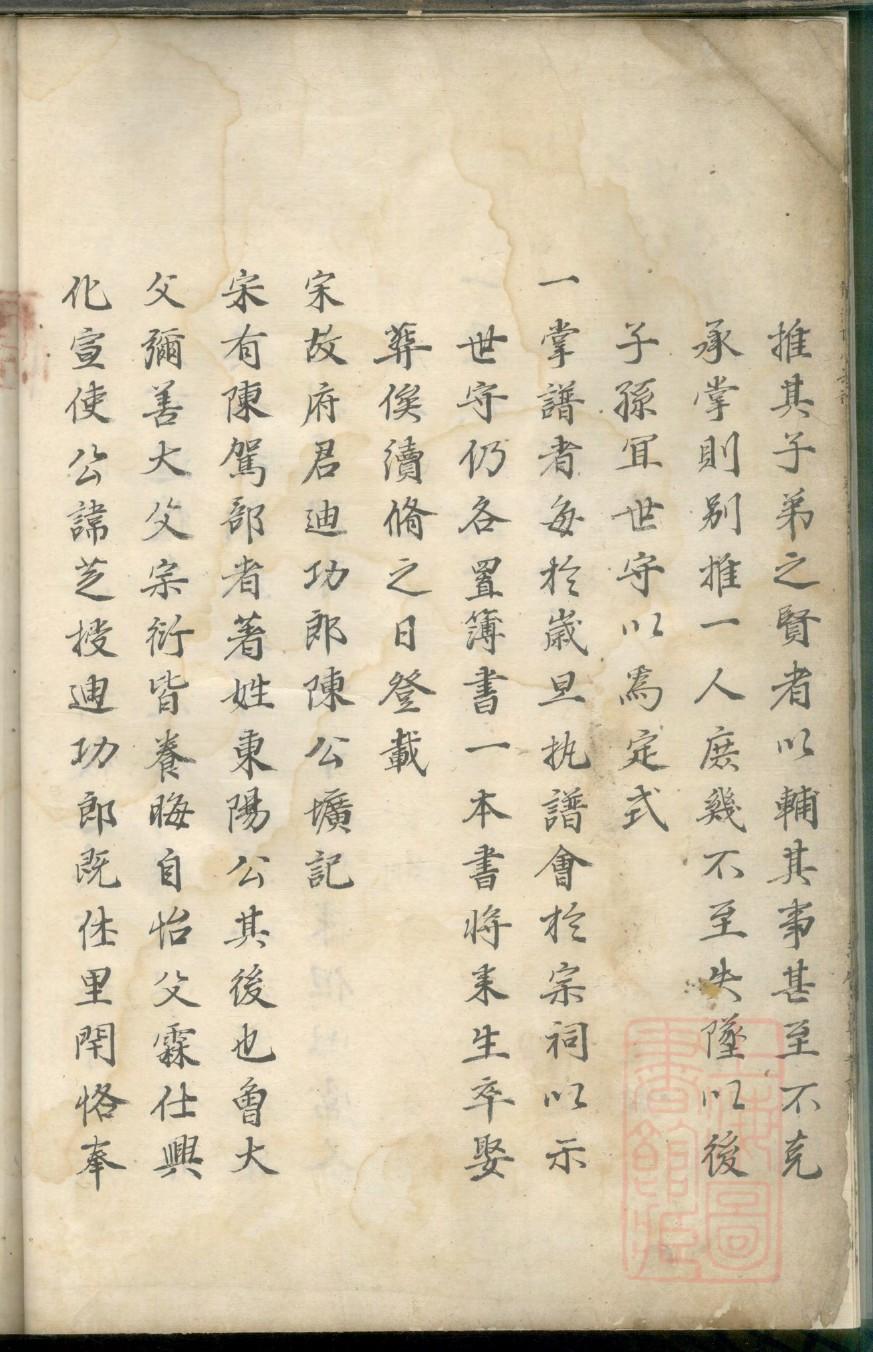 推其子弟之賢者以輔其事甚至不克
承掌則别推一人庶幾不至失墜以後
子孫宜世守以為定式
一掌譜者每於歲旦执譜會於宗祠以示
世守仍各置簿書一本書将来生卒娶
葬俟續脩之日登載
宋故府君迪功郎陳公壙記
宋有陳駕部者著姓東陽公其後也曾大
父彌善大父宗衍皆養晦自怡父霖仕興
化宣使公諱芝授迪功郎既仕里閈恪奉
上海圖
書館藏